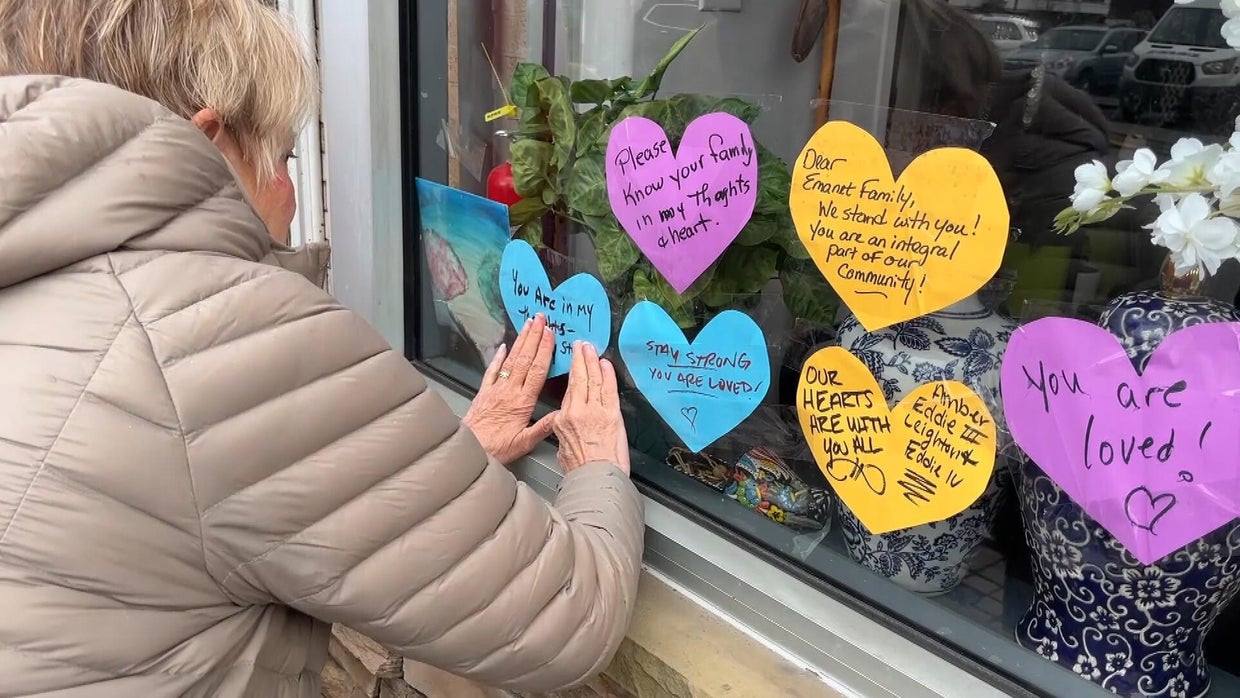 Please
Know your family
in my thoghts
& heart.
Dear
Emanet Family,
We stand with you!
You are an integral
part of our
Community!
You Are in my
thoghts-
STAY STRONG
YOU ARE LOVED!
OUR
HEARTS
ARE WITH
YOU ALL
Amber
Eddie III
Leighton &
Eddie IV
You are
loved!